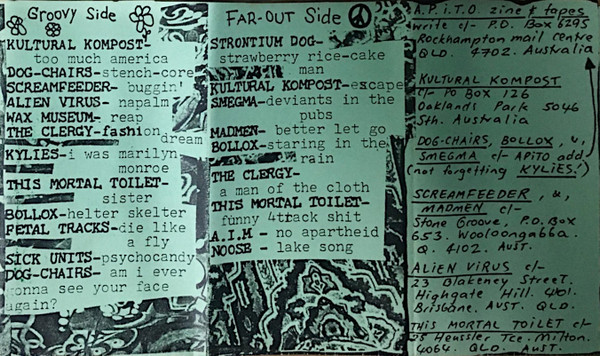 Groovy Side
KULTURAL KOMPOST-
too much america
DOG-CHAIRS-stench-core
SCREAMFEEDER- buggin'
ALIEN VIRUS- napalm
WAX MUSEUM- reap
THE CLERGY-fashion
dream
KYLIES-i was marilyn
monroe
THIS MORTAL TOILET-
sister
BOLLOX-helter skelter
FETAL TRACKS-die like
a fly
SICK UNITS-psychocandy
DOG-CHAIRS-am i ever
gonna see your face
again?
FAR-OUT Side
STRONTIUM DOG-
strawberry rice-cake
man
KULTURAL KOMPOST-escape
SMEGMA-deviants in the
pubs
MADMEN- better let go
BOLLOX-staring in the
rain
THE CLERGY-
a man of the cloth
THIS MORTAL TOILET-
funny 4track shit
A.I.M - no apartheid
NOOSE - lake song
A.P.i.T.O. zine & tapes
write c/- P.O. Box 6295
Rockhampton mail centre
QLD. 4702. Australia
KULTURAL KOMPOST
c/- PO Box 126
Oaklands Park 5046
Sth. Australia
DOG-CHAIRS, BOLLOX, &,
SMEGMA c/- APiTO add
(not forgetting KYLIES!)
SCREAMFEEDER, &,
MADMEN c/-
Stone Groove, P.O. Box
653. Wooloongabba.
Q. 4102. AUST.
ALIEN VIRUS c/-
23 Blakeney Street.
Highgate Hill. 4101.
Brisbane. AUST. QLD.
THIS MORTAL TOILET c/-
25 Heussler Tce. Milton.
4064 QLD. AUST.